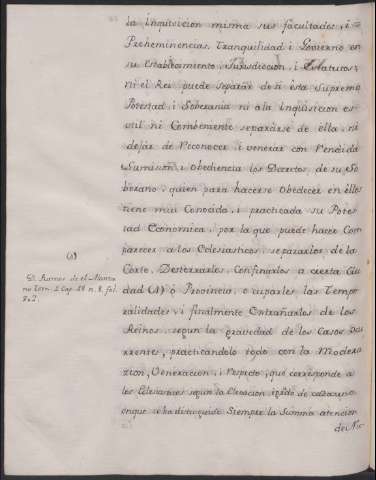 la Inquisicion misma sus facultades, i
Preheminencias, tranquilidad i Govierno en
su Establecimiento, Jurisdiccion, i Estatutos,
ni el Rei puede separar de si esta Suprema
Potestad i Soberania ni a la Inquisicion es
util ni Combeniente separarse de ella, ni
dejar de Reconocer i venerar con Rendida
Sumision i obediencia los Decretos de su So
berano, quien para hacerse obedecer en ellos
tiene mui Conocida, i practicada su Potes
tad Economica, por la que puede hacer Com
parecer a los Eclesiasticos, separarlos de la
Corte, Desterrarlos, Confinarlos a cierta Ciu
dad (A) o Provincia, ocuparles las Tempo
ralidades i finalmente Extrañarlos de los
Reinos, segun la gravedad de los Casos Ocu
rrentes, practicandolo todo con la Modera
zion, Veneracion, i Respeto, que corresponde a
los Eclesiasticos segun la Elevacion, i grado de cada uno,
en que se ha distinguido Siempre la Summa atencion
de
(A)
D. Ramos de el Manza
no tom. 2 Cap. 58 n. 8 fol.